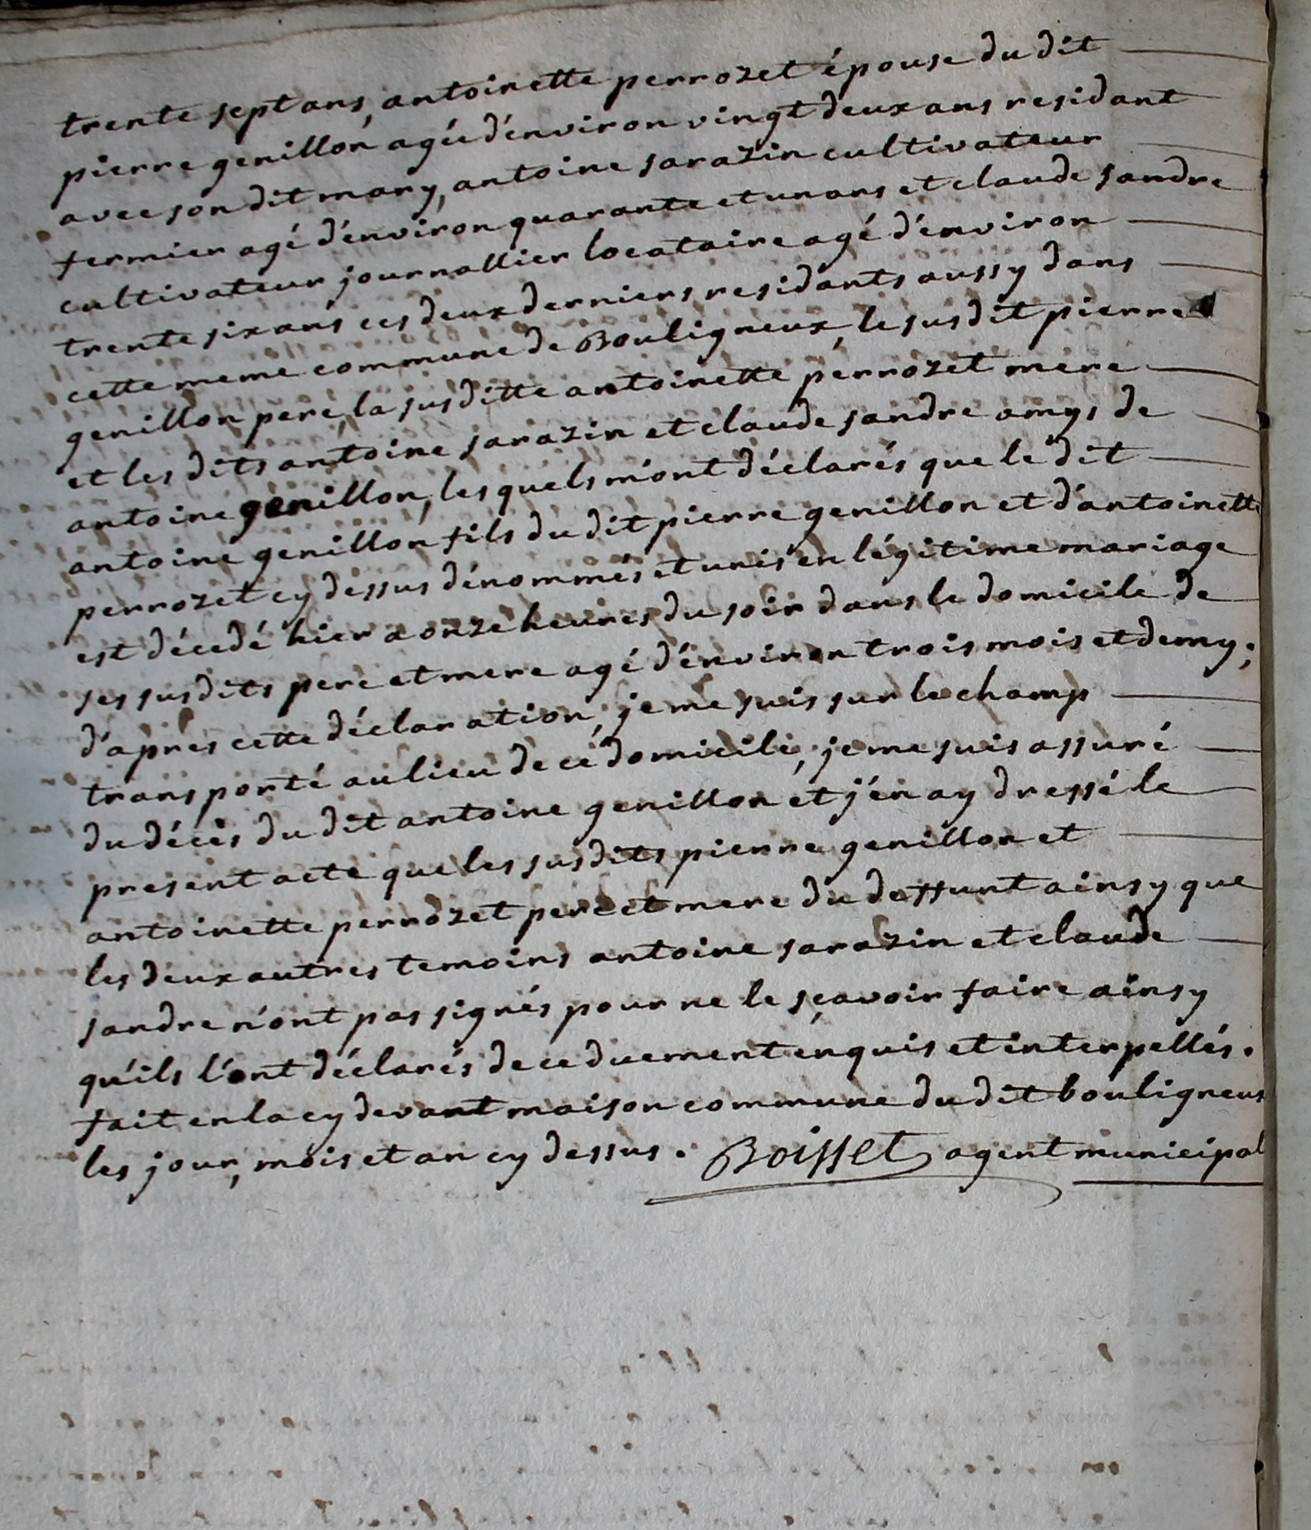 trente sept ans, antoinette perrozet épouse du dit
pierre genillon agée d'environ vingt deux ans residant
avec son dit mary, antoine sarazin cultivateur
fermier agé d'environ quarante et un ans et claude sandre
cultivateur journallier locataire agé d'environ
trente six ans ces deux derniers residants aussy dans
cette meme commune de Bouligneux, le susdit pierre
genillon pere, la susditte antoinette perrozet mere
et les dits antoine sarazin et claude sandre amys de
antoine genillon, lesquels m'ont déclarés que le dit
antoine genillon fils du dit pierre genillon et d'antoinette
perrozet cy dessus dénommés et unis en légitime mariage
est décedé hier a onze heures du soir dans le domicile de
ses susdits pere et mere agé d'environ trois mois et demy;
d'apres cette déclaration, je me suis sur le champ
transporté au lieu de ce domicile, je me suis assuré
du décès du dit antoine genillon et j'en ay dressé le
present acte que les susdits pierre genillon et
antoinette perrozet pere et mere du deffunt ainsy que
les deux autres temoins antoine sarazin et claude
sandre n'ont pas signés pour ne le sçavoir faire ainsy
qu'ils l'ont déclarés de ce duement enquis et interpellés.
fait en la cy devant maison commune du dit bouligneux
les jour, mois et an cy dessus. Boisset agent municipal